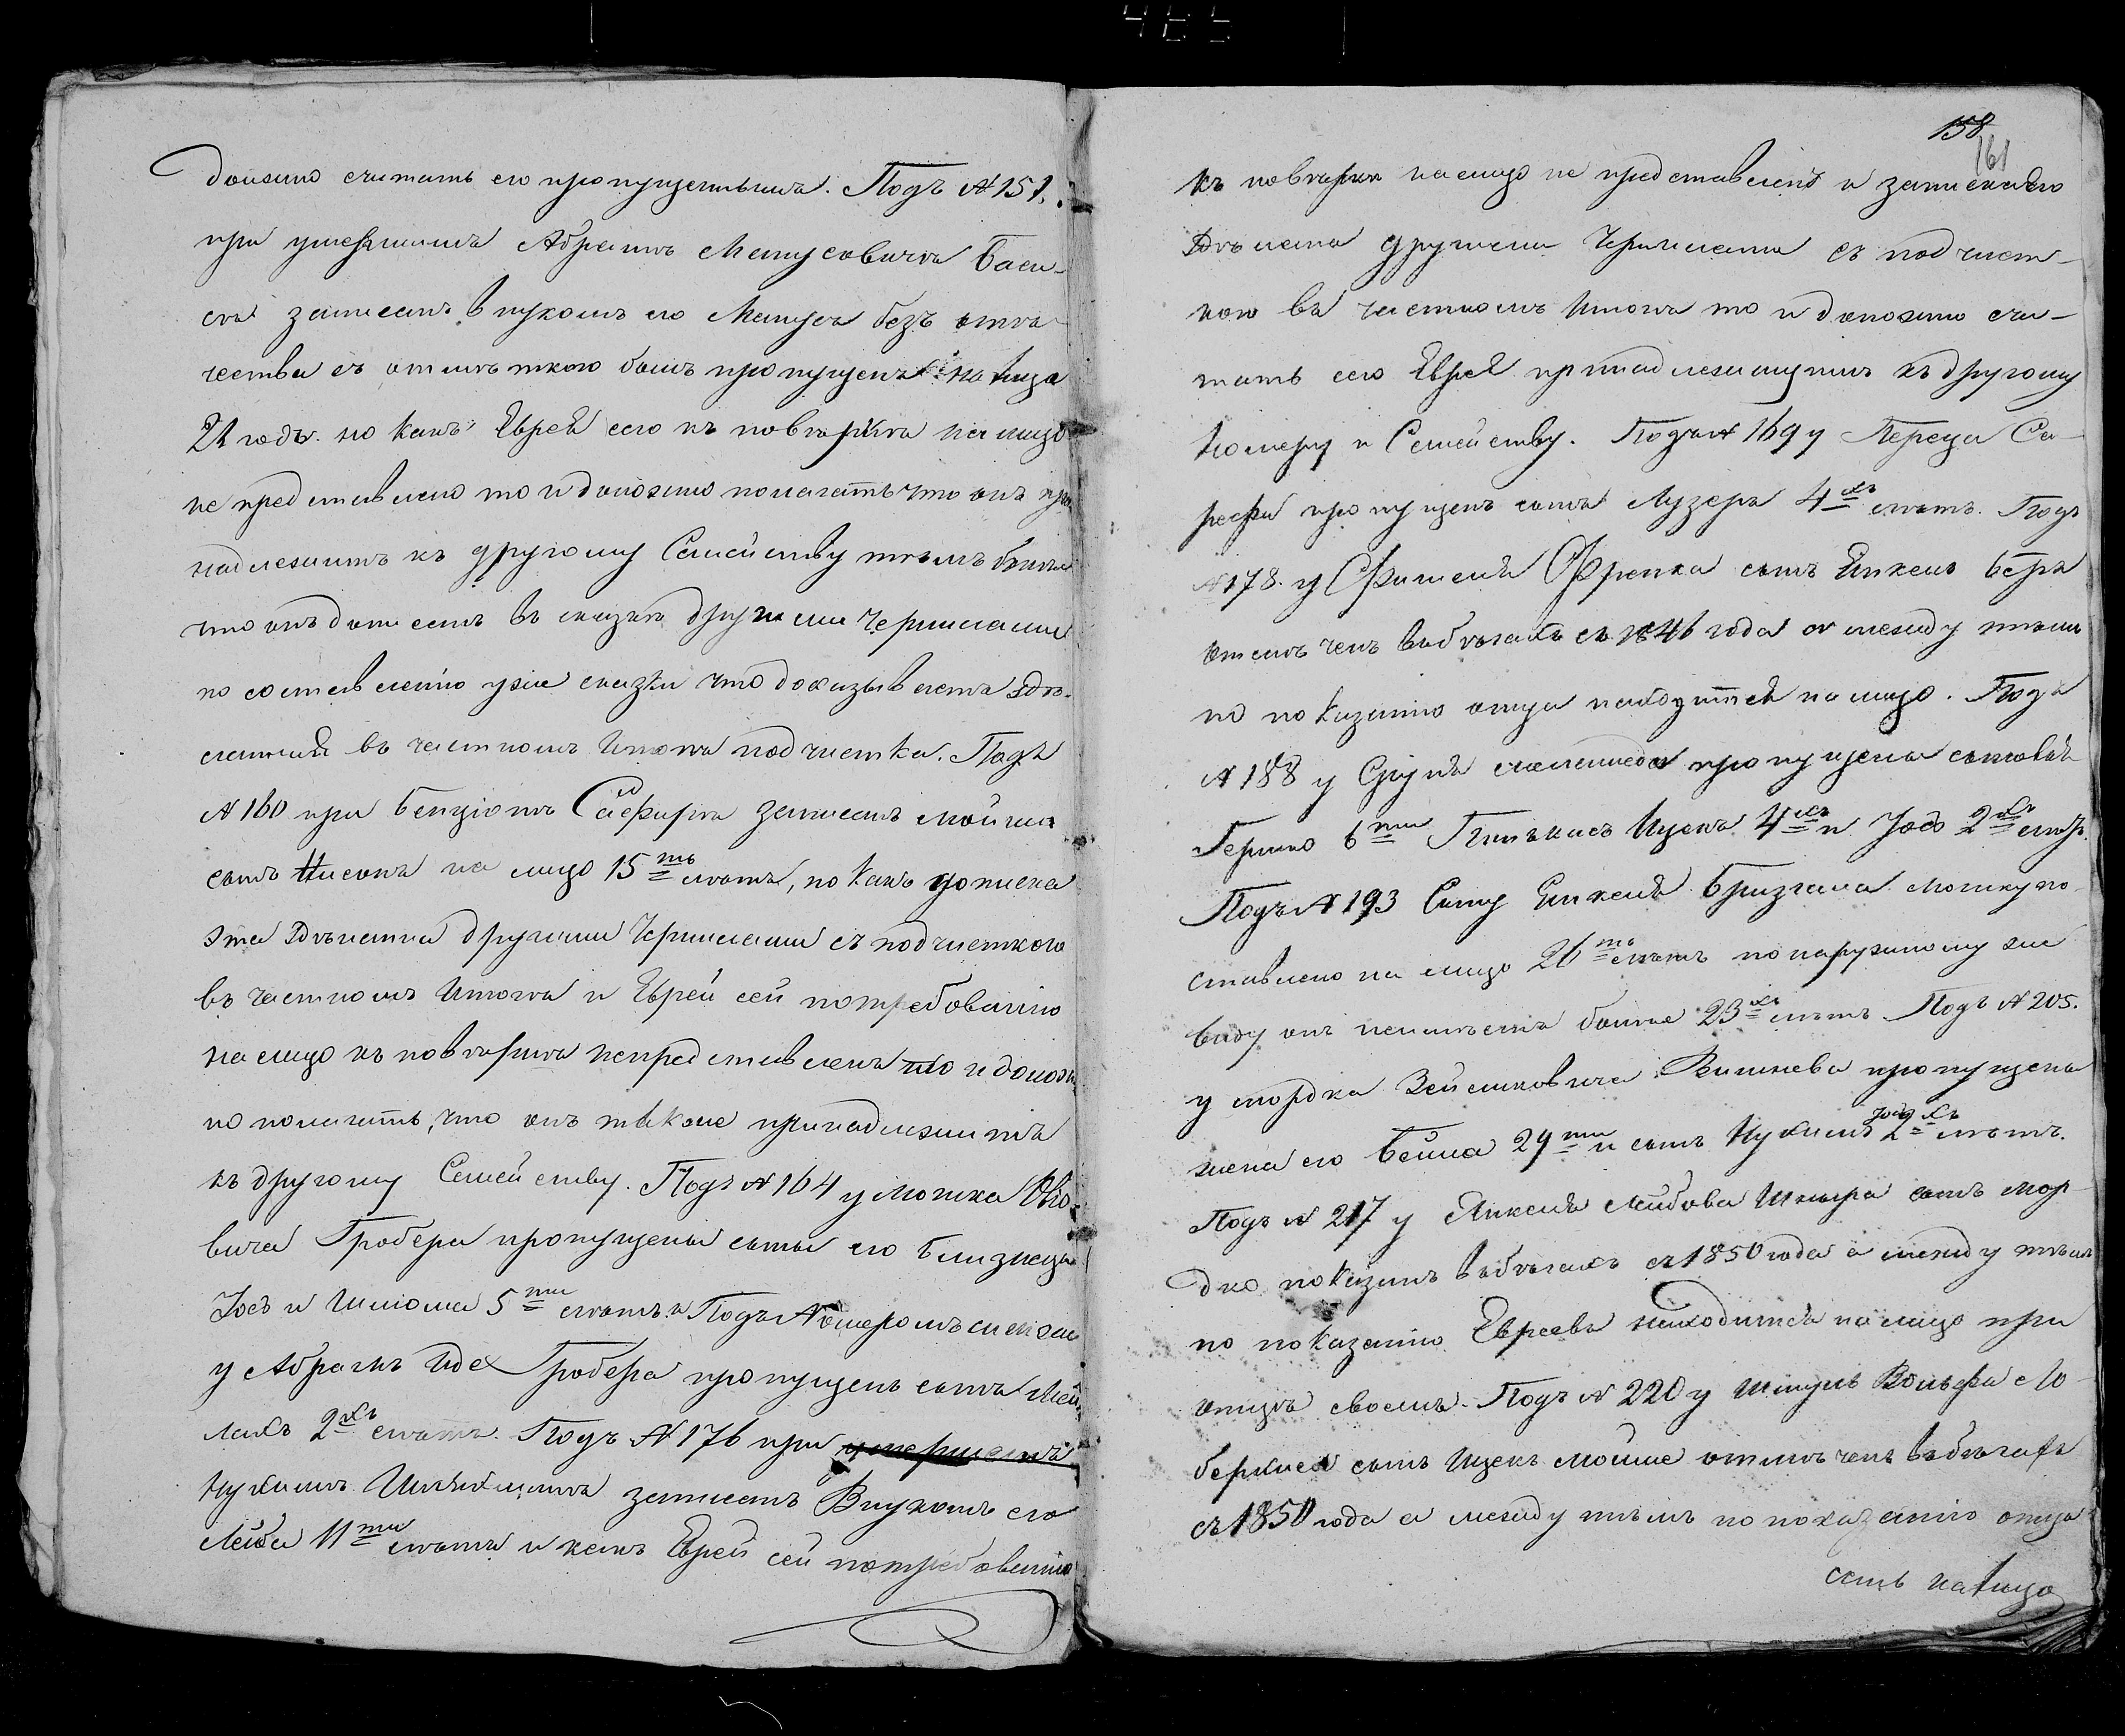 должно считать его пропущеннымъ. Подъ № 151.
при умершимъ Абрамъ Мотусовича Баси-
са записанъ внукомъ его Матусъ безъ отъ-
чества съ отмѣткою былъ пропущенъ на лицо
21 годъ. но какъ Еврей сего къ повѣркѣ на лицо
не представлено то и должно полагать что онъ при
надлежитъ къ другому Семейству тѣмъ болѣе
что онъ дописанъ въ сказкѣ другими чернилами
по составленію уже сказки что доказываетъ здѣ-
ланная въ частномъ Итогѣ подчистка. Подъ
№ 160 при Бенціонъ Сапфира записанъ Мойша
сынъ Нисонъ на лицо 15ть лѣтъ, но какъ дописка
эта здѣлана другими чернилами съ подчисткою
въ частномъ Итогѣ и Еврей сей по требованію
на лицо къ повѣркѣ непредставленъ то и долж
но полагать, что онъ также принадлежитъ
къ другому Семейству. Подъ № 164 у Мошка
вича Гробера пропущены сыны его близнецы
Іосъ и Шлома 5ти лѣтъ. Подъ Номеромъ симъ же
у Абрамъ Иде Гробера пропущенъ сынъ Мей
лихъ 2хъ лѣтъ. Подъ № 176 при умершемъ
Нухимъ записанъ Внукомъ его
Лейба 11ти лѣтъ и какъ Еврей сей по требованію
158
161
къ повѣркѣ на лицо не представленъ и записанъ
здѣлана другими Чернилами съ подчист-
кою въ частномъ Итогѣ то и должно счи-
тать сего Еврея принадлежащимъ къ другому
Номеру и Семейству. Подъ № 169 у Переца Са-
пропущенъ сынъ Лузеръ 4хъ лѣтъ. Подъ
№ 178. у Фишеля Френка сынъ Янкель Беръ
отмѣченъ въ бѣгахъ съ 1846 года а между тѣмъ
по показанію отца находится на лицо. Подъ
№ 188 у Сруля пропущены сыновья
Гершко 6ти Пинькасъ Ицекъ 4хъ и Іосъ 2хъ лѣтъ.
Подъ № 193 Сыну Янкеля Бризгала Мошку по-
ставлено на лицо 26ть лѣтъ по наружному же
виду онъ неимѣетъ болѣе 23хъ лѣтъ. Подъ № 205.
у Мордка Зейликовича Вишнева пропущены
жена его Бейла 29ти и сынъ Нухимъ Іосъ 2хъ лѣтъ.
Подъ № 217 у Янкеля Лейбова Шнира сынъ Мор-
дко показанъ въ бѣгахъ съ 1850 года а между тѣмъ
по показанію Евреевъ находится на лицо при
отцѣ своемъ. Подъ № 220 у Шмуль Вольфа Ло-
сынъ Ицекъ Мойше отмѣченъ въ бѣгахъ
съ 1850 года а между тѣмъ по показанію отца
есть на лицо